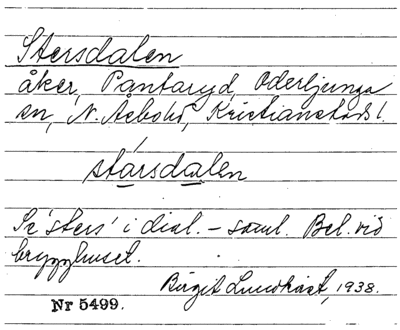 Stersdalen
åker, Pantaryd, Oderljunga
sn, N. Åsbohd, Kristianstads l.
stársdalen
Se 'sters' i dial. - saml. Bel. vid
brygghuset.
Birgit Lundkvist, 1938.
Nr 5499.